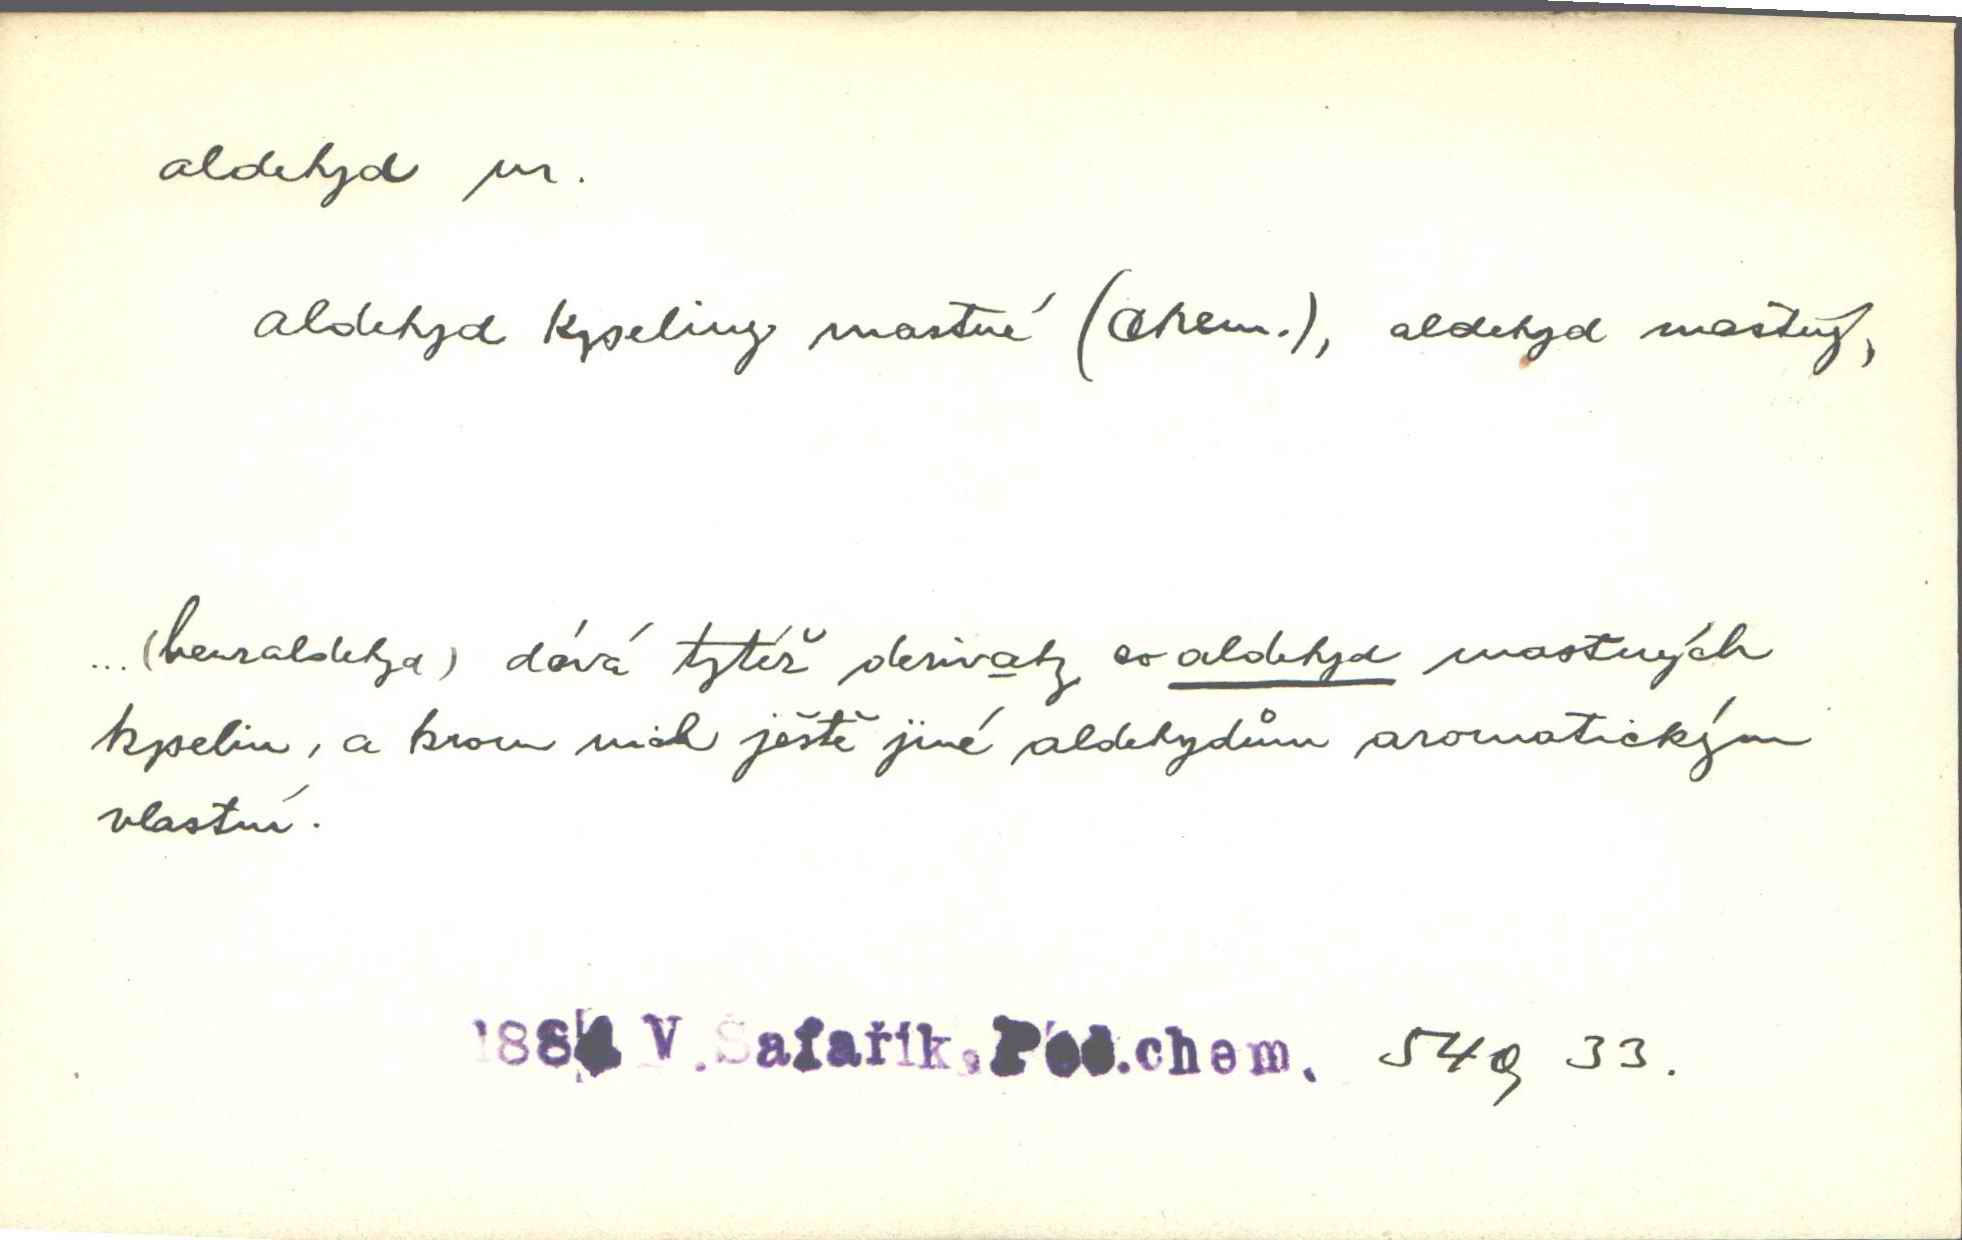 aldehyd m.
aldehyd kyseliny mastné (chem.), aldehyd mastný,
... (benzaldehyd) dává tytéž derivaty co aldehyd mastných
kyselin, a krom nich ještě jiné aldehydům aromatickým
vlastní.
V. Šafařík, chem. 549 33.